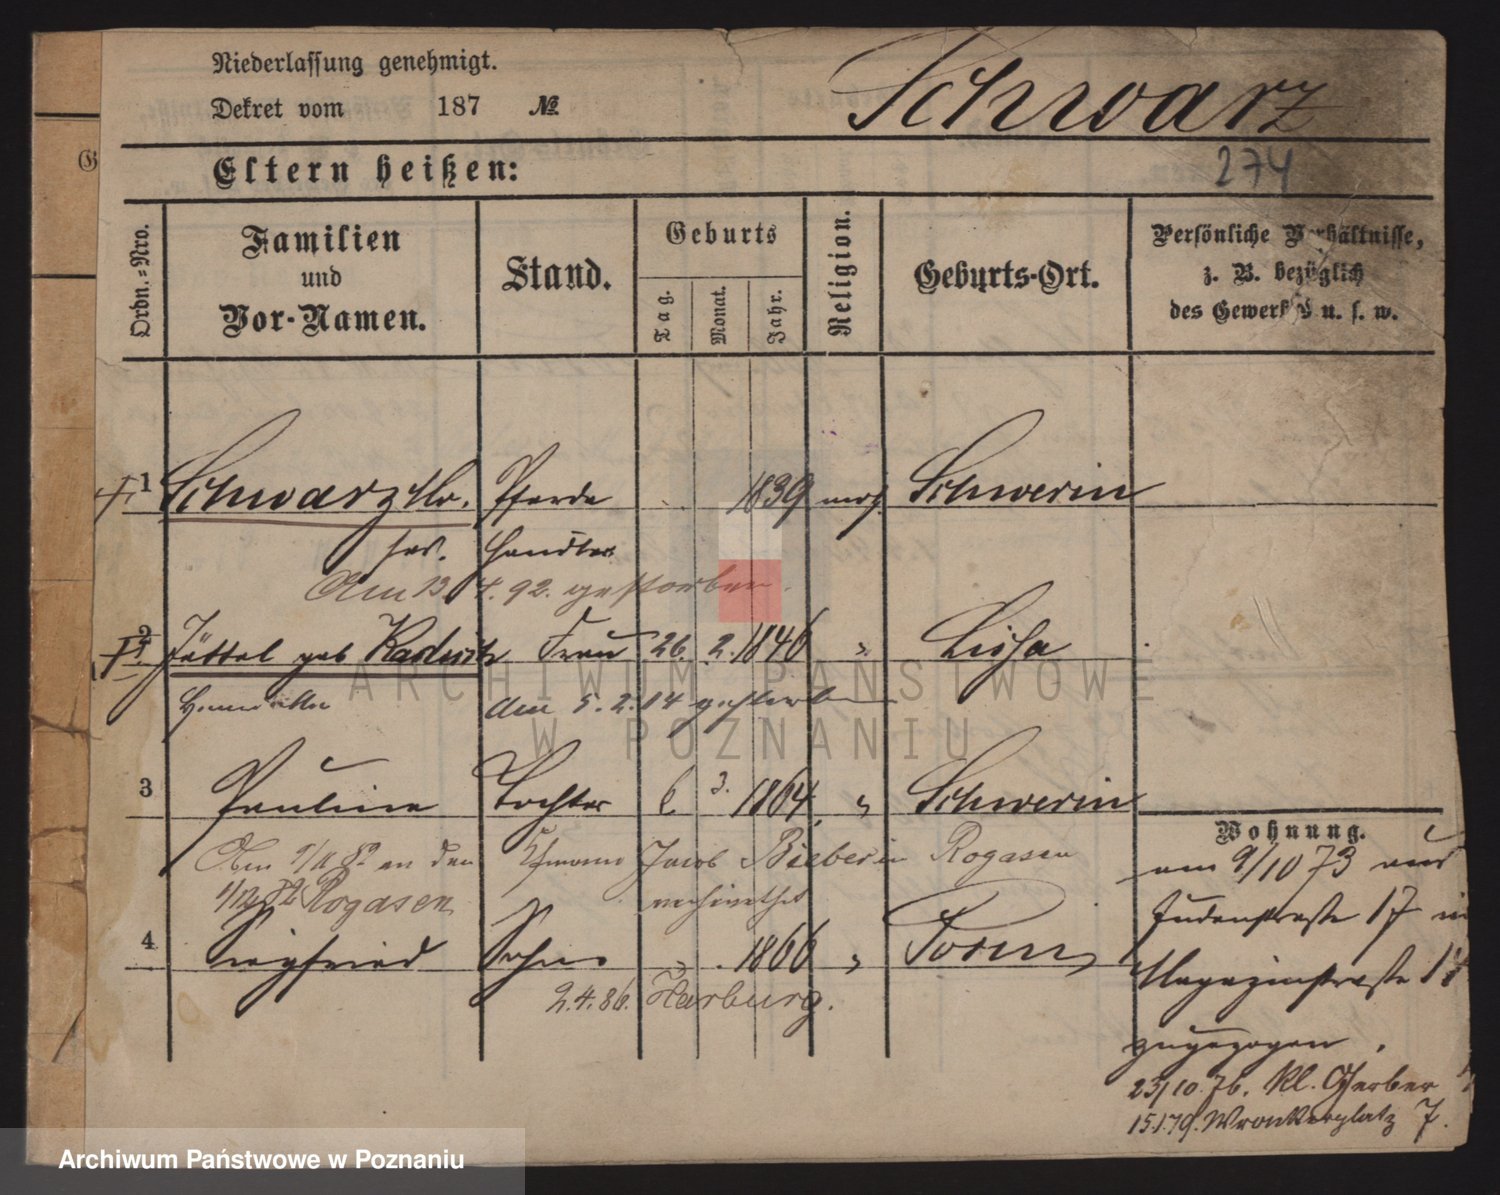 Niederlassung genehmigt.
Dekret vom 187 № Schwarz
Eltern heißen: 274
G
Ordn.=Nro.
Familien
und
Vor-Namen.
Stand.
Geburts
Tag.
Monat.
Jahr.
Religion.
Geburts-Ort.
Persönliche Verhältnisse,
z. B. bezüglich
des Gewerkes u. s. w.
1 Schwarz Pferde 1839 mos. Schwerin
Handler
Am 13 4. 92. gestorben.
2 Jettel geb Radwitz Frau 26. 2. 1846 " Lissa
Henriette am 5. 2. 14 gestorben
3 Pauline Tochter 6 3. 1864 " Schwerin
an den Kfmann Jacob Bieber in Rogasen
Rogasen verheirathet
4 Siegfried Sohn 1866 " Posen
2.4.86. Harburg.
Wohnung.
am 9/10 73 aus
Judenstraße 17 in
Magazinstraße
zugezogen.
23/10.76. Kl. Gerber
15.1.79. Wronkerplatz 7.
ARCHIWUM PAŃSTWOWE
W POZNANIU
Archiwum Państwowe w Poznaniu